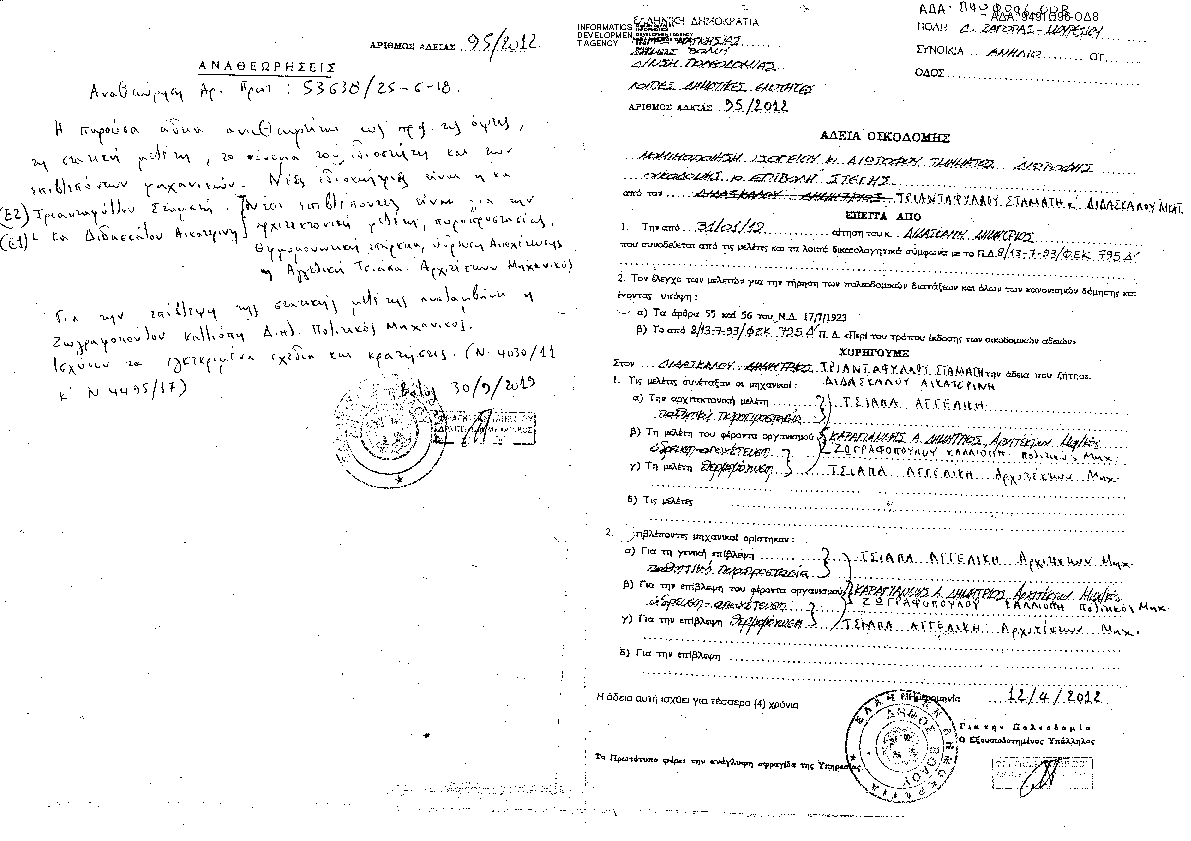 ΑΡΙΘΜΟΣ ΑΔΕΙΑΣ 95/2012
ΑΝΑΘΕΩΡΗΣΕΙΣ
Αναθεώρηση Αρ. Πρωτ : 53638/25-6-18.
Η παρούσα άδεια αναθεωρείται ως προς τις όψεις,
τη στατική μελέτη, το όνομα του ιδιοκτήτη και των
επιβλεπόντων μηχανικών. Νέες ιδιοκτήτριες είναι η κα
(Ε2) Τριανταφύλλου Σταματή. Νέοι επιβλέποντες είναι για την
(Ε1) κα Διδασκάλου Αικατερίνη αρχιτεκτονική μελέτη, πυροπροστασίας,
η Αγγελική Τσιάπα. Αρχιτέκτων Μηχανικός
Για την επίβλεψη της στατικής μελέτης αναλαμβάνει η
Ζωγραφοπούλου Καλλιόπη Διπλ. Πολιτικός Μηχανικός.
Ισχύουν τα ελεγκριμένα σχέδια και κρατήσεις. (Ν. 4030/11
κ' Ν 4495/17)
Βόλος 30/9/2019
INFORMATICS
DEVELOPMEN
T AGENCY
ΕΛΛΗΝΙΚΗ ΔΗΜΟΚΡΑΤΙΑ
Δ/ΝΣΗ ΠΟΛΕΟΔΟΜΙΑΣ
ΛΟΙΠΕΣ ΔΗΜΟΤΙΚΕΣ ΕΝΟΤΗΤΕΣ
ΑΡΙΘΜΟΣ ΑΔΕΙΑΣ 95/2012
ΑΔΑ:
ΠΟΛΗ Δ. ΖΑΓΟΡΑΣ-ΜΟΥΡΕΣΙΟΥ
ΣΥΝΟΙΚΙΑ ΑΝΗΛΙΟ ΟΤ
ΟΔΟΣ
ΑΔΕΙΑ ΟΙΚΟΔΟΜΗΣ
ΝΟΜΙΜΟΠΟΙΗΣΗ ΙΣΟΓΕΙΟΥ Κ. ΔΙΩΡΟΦΟΥ ΤΜΗΜΑΤΟΣ ΔΙΩΡΟΦΗΣ
ΟΙΚΟΔΟΜΗΣ Κ ΕΠΙΒΟΛΗ ΣΤΕΓΗΣ
από τον ΔΙΔΑΣΚΑΛΟΥ ΔΗΜΗΤΡΙΟΣ ΤΡΙΑΝΤΑΦΥΛΛΟΥ ΣΤΑΜΑΤΗ κ' ΔΙΔΑΣΚΑΛΟΥ ΑΙΚΑΤ.
ΕΠΕΙΤΑ ΑΠΟ
1. Την από 31/01/12 αίτηση του κ. ΔΙΔΑΣΚΑΛΟΥ ΔΗΜΗΤΡΙΟΣ
που συνοδεύεται από τις μελέτες και τα λοιπά δικαιολογητικά σύμφωνα με το Π.Δ. 8/13-7-93/ΦΕΚ 795 Δ'
2. Τον έλεγχο των μελετών για την τήρηση των πολεοδομικών διατάξεων και όλων των κανονισμών δόμησης και
έχοντας υπόψη :
α) Τα άρθρα 55 και 56 του Ν.Δ. 17/7/1923
β) Το από 8/13-7-93/ΦΕΚ 795 Δ' Π. Δ. «Περί του τρόπου έκδοσης των οικοδομικών αδειών»
ΧΟΡΗΓΟΥΜΕ
Στον ΔΙΔΑΣΚΑΛΟΥ ΔΗΜΗΤΡΙΟΣ ΤΡΙΑΝΤΑΦΥΛΛΟΥ ΣΤΑΜΑΤΗ την άδεια που ζήτησε.
1. Τις μελέτες συνέταξαν οι μηχανικοί : ΔΙΔΑΣΚΑΛΟΥ ΑΙΚΑΤΕΡΙΝΗ
α) Την αρχιτεκτονική μελέτη ΤΣΙΑΠΑ ΑΓΓΕΛΙΚΗ
παθητική πυροπροστασία
β) Τη μελέτη του φέροντα οργανισμού ΚΑΡΑΓΙΑΝΝΗΣ Α. ΔΗΜΗΤΡΙΟΣ, Αρχιτέκτων Μηχ/κός
ύδρευση-αποχέτευση ΖΩΓΡΑΦΟΠΟΥΛΟΥ ΚΑΛΛΙΟΠΗ Πολιτικός Μηχ.
γ) Τη μελέτη θερμομόνωση ΤΣΙΑΠΑ ΑΓΓΕΛΙΚΗ Αρχιτέκτων Μηχ.
δ) Τις μελέτες
2. Επιβλέποντες μηχανικοί ορίστηκαν :
α) Για τη γενική επίβλεψη ΤΣΙΑΠΑ ΑΓΓΕΛΙΚΗ Αρχιτέκτων Μηχ.
παθητική πυροπροστασία
β) Για την επίβλεψη του φέροντα οργανισμού ΚΑΡΑΓΙΑΝΝΗΣ Α. ΔΗΜΗΤΡΙΟΣ, Αρχιτέκτων Μηχ/κός
ύδρευση-αποχέτευση ΖΩΓΡΑΦΟΠΟΥΛΟΥ ΚΑΛΛΙΟΠΗ Πολιτικός Μηχ.
γ) Για την επίβλεψη θερμομόνωση ΤΣΙΑΠΑ ΑΓΓΕΛΙΚΗ Αρχιτέκτων Μηχ.
δ) Για την επίβλεψη
Η άδεια αυτή ισχύει για τέσσερα (4) χρόνια
Ημερομηνία 12/4/2012
Για την Πολεοδομία
Ο Εξουσιοδοτημένος Υπάλληλος
Το Πρωτότυπο φέρει την ανάγλυφη σφραγίδα της Υπηρεσίας
ΕΛΛΗΝΙΚΗ ΔΗΜΟΚΡΑΤΙΑ
ΔΗΜΟΣ ΒΟΛΟΥ